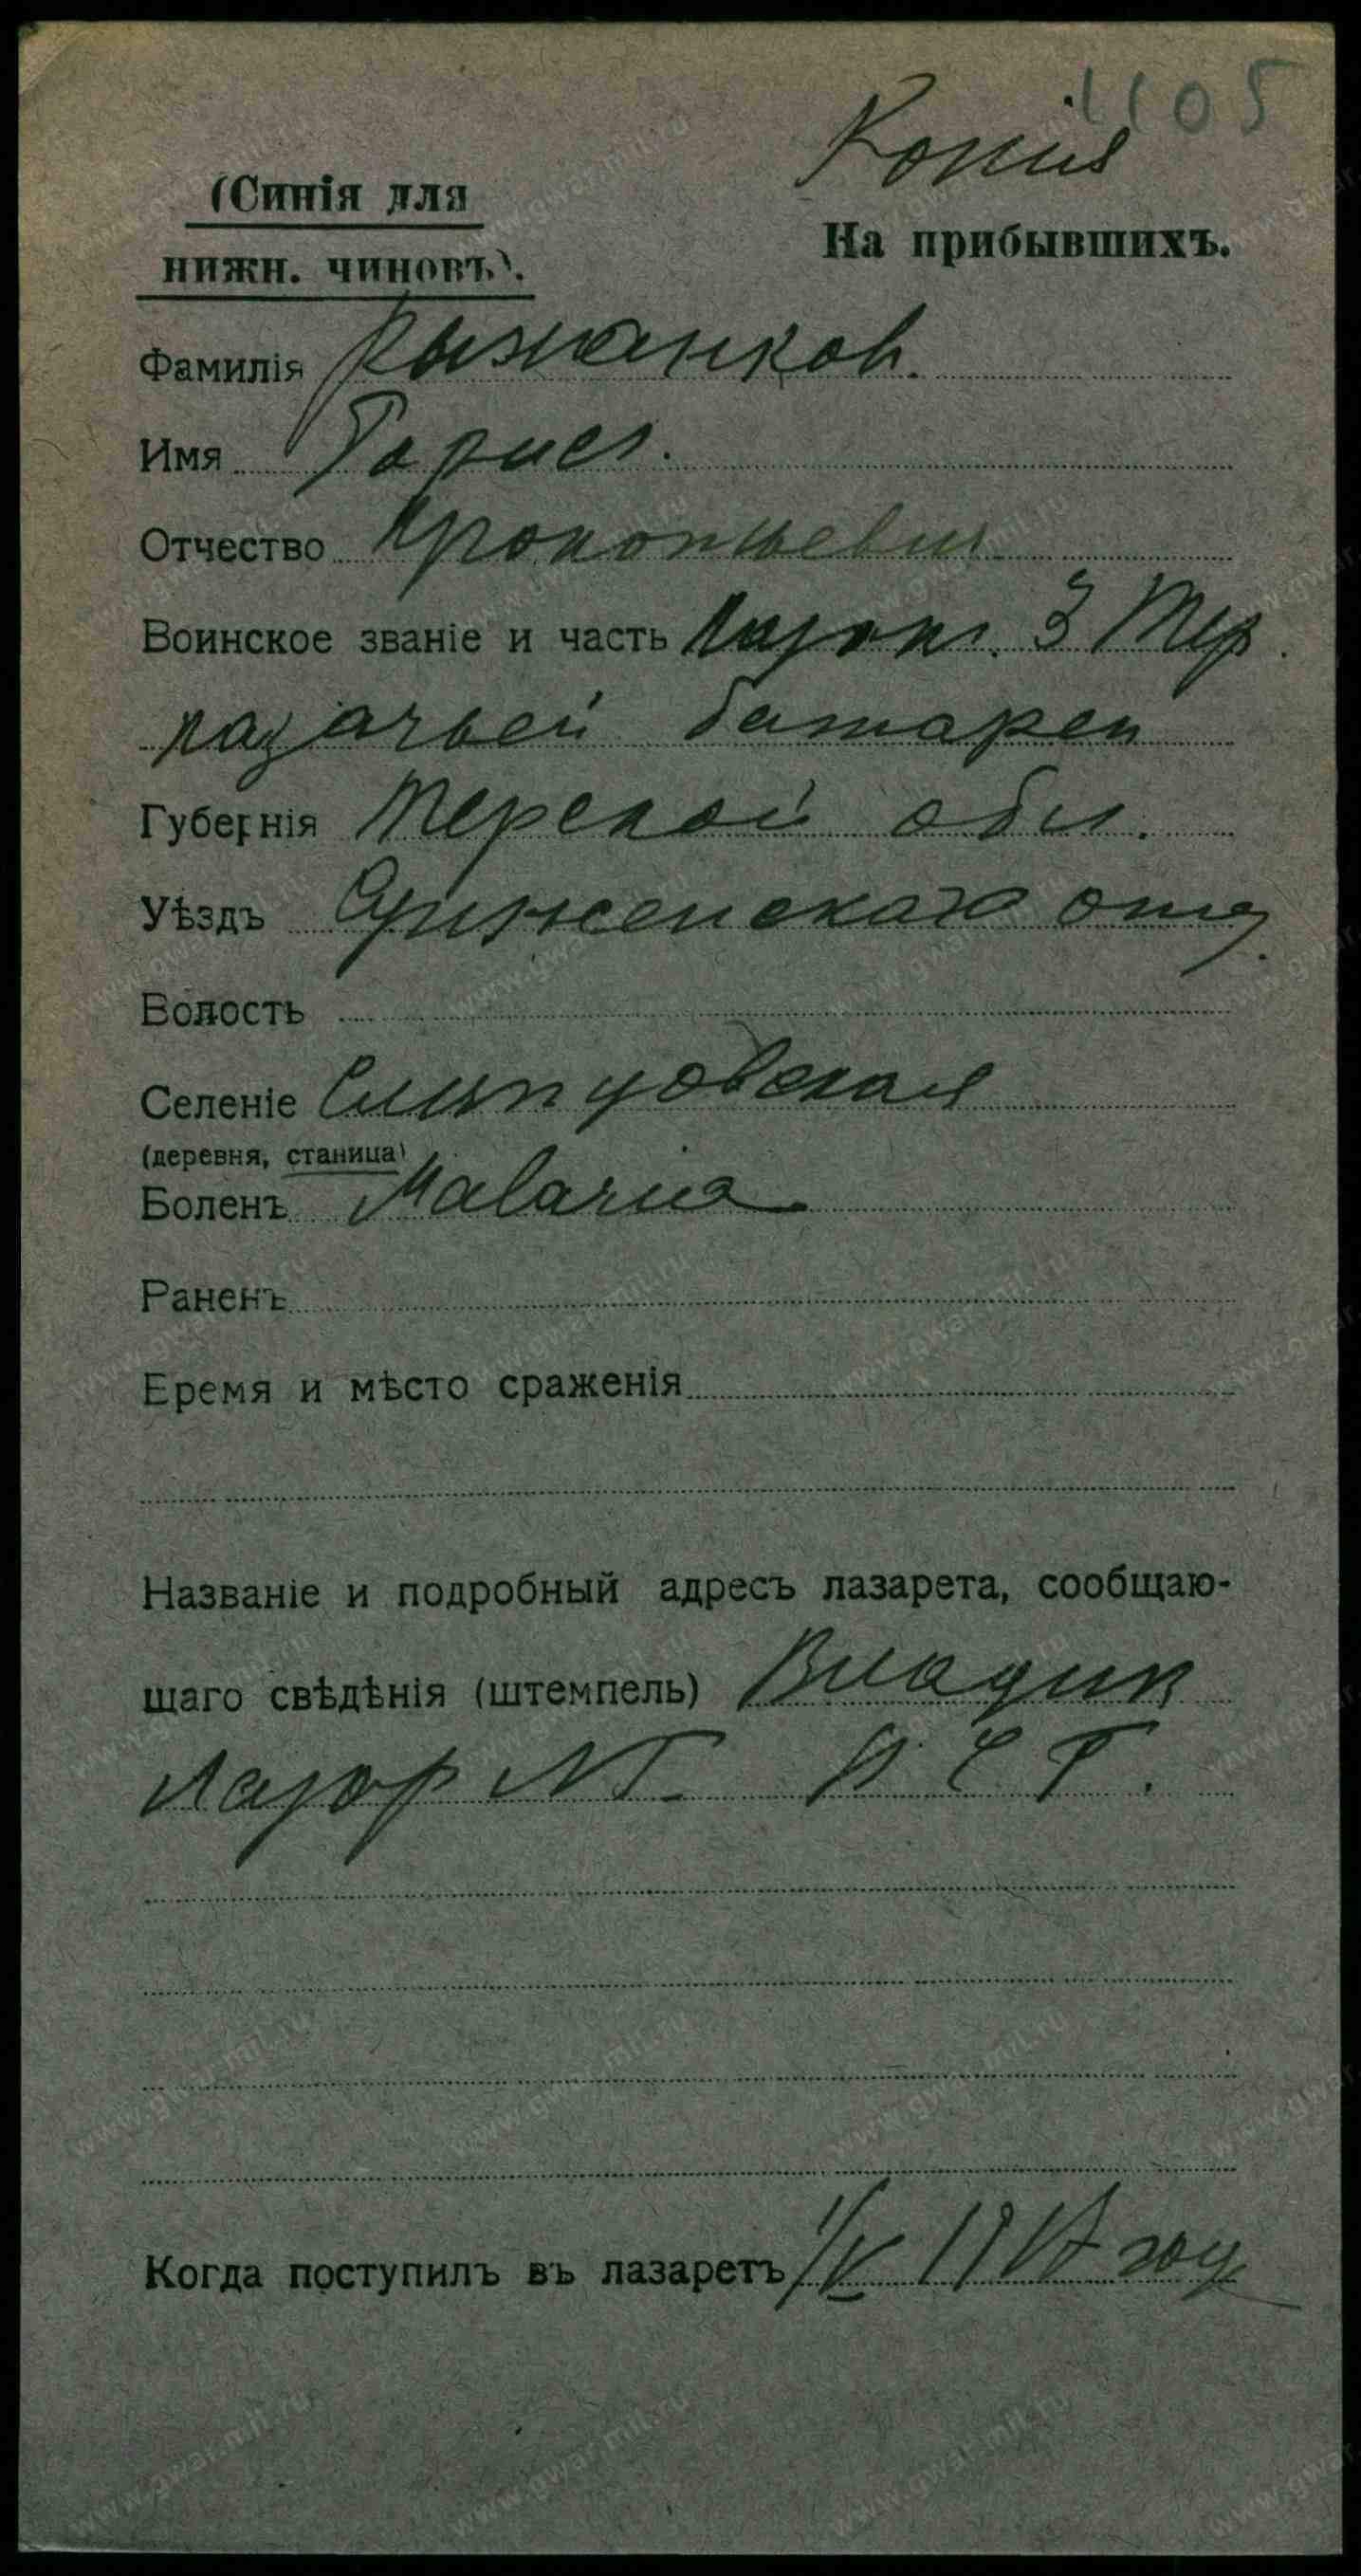 1105
Копия
(Синія для
нижн. чиновъ).
На прибывшихъ.
Фамилія Рыжанков.
Имя Борис.
Отчество Прокопьевич
Воинское званіе и часть Казак. 3 Тер.
казачьей батареи
Губернія Терской обл.
Уѣздъ Сунженскаго отд.
Волость
Селеніе Слепцовская
(деревня, станица)
Боленъ Malaria
Раненъ
Время и мѣсто сраженія
Названіе и подробный адресъ лазарета, сообщаю-
щаго свѣдѣнія (штемпель) Владик
Лазар №1 В. С. Г.
Когда поступилъ въ лазаретъ 1/V 1917 год